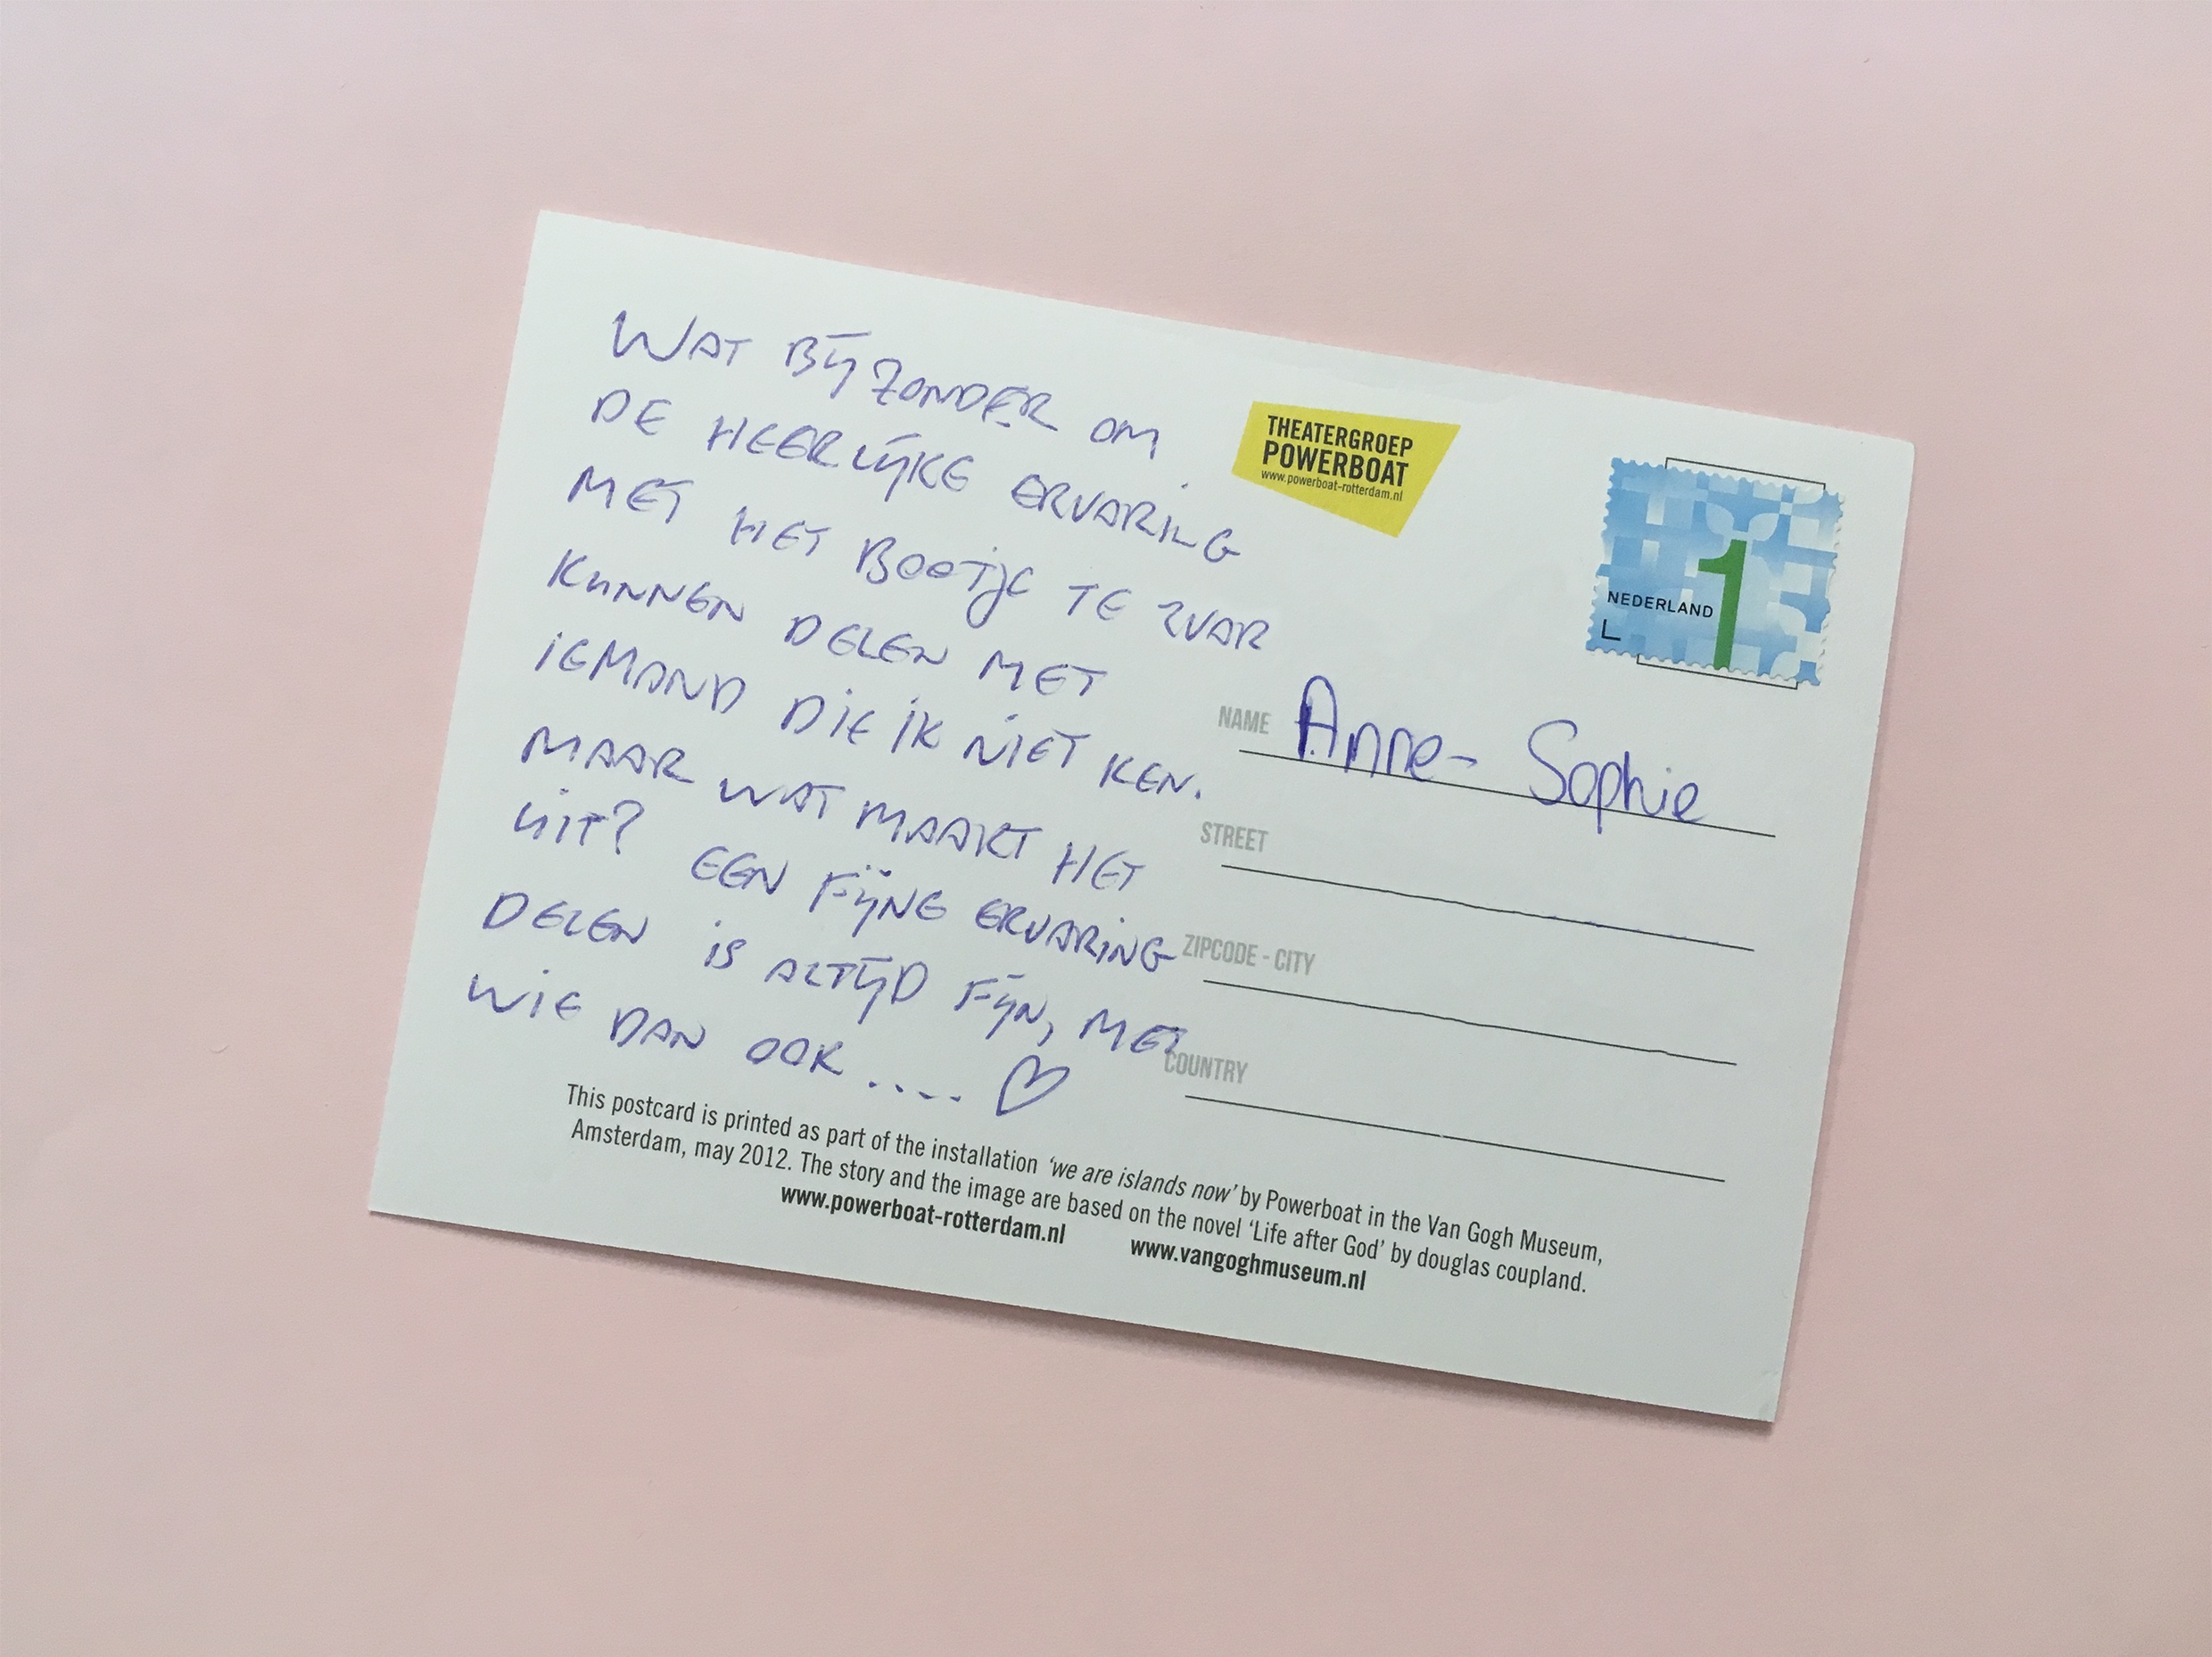 WAT BIJZONDER OM
DE HEERLIJKE ERVARING
MET HET BOOTJE TE
KUNNEN DELEN MET
IEMAND DIE IK NIET KEN.
MAAR WAT MAAKT HET
UIT? EEN FIJNE ERVARING
DELEN IS ALTIJD FIJN, MET
WIE DAN OOK .... ♡
THEATERGROEP
POWERBOAT
www.powerboat-rotterdam.nl
NEDERLAND 1
NAME Anne-Sophie
STREET
ZIPCODE - CITY
COUNTRY
This postcard is printed as part of the installation 'we are islands now' by Powerboat in the Van Gogh Museum,
Amsterdam, may 2012. The story and the image are based on the novel 'Life after God' by douglas coupland.
www.powerboat-rotterdam.nl www.vangoghmuseum.nl